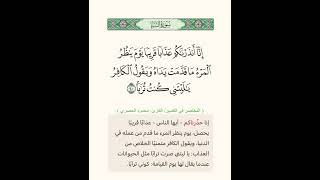 سورة النبإ
إِنَّآ أَنذَرۡنَٰكُمۡ عَذَابٗا قَرِيبٗا يَوۡمَ يَنظُرُ
ٱلۡمَرۡءُ مَا قَدَّمَتۡ يَدَاهُ وَيَقُولُ ٱلۡكَافِرُ
يَٰلَيۡتَنِي كُنتُ تُرَٰبَۢا ٤٠
( المختصر في التفسير| القارئ: محمود الحصري )
إنا حذّرناكم - أيها الناس - عذابًا قريبًا
يحصل، يوم ينظر المرء ما قدم من عمله في
الدنيا، ويقول الكافر متمنيًا الخلاص من
العذاب: يا ليتني صرت ترابًا مثل الحيوانات
عندما يقال لها يوم القيامة: كوني ترابًا